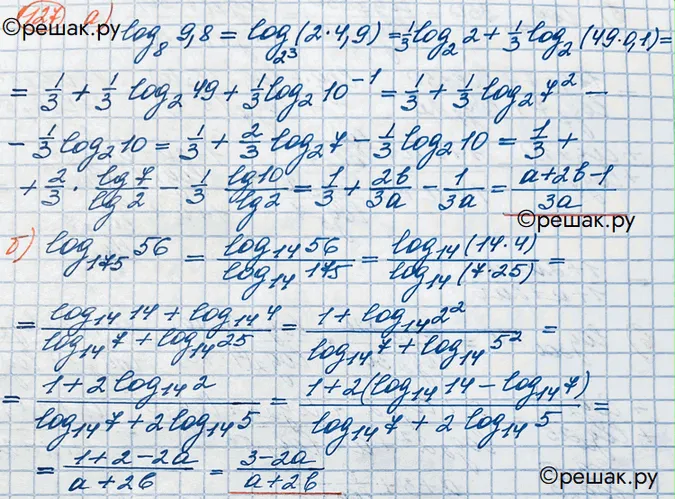 127 а) ©решак.ру
log₈ 9,8 = log₂³ (2·4,9) = 1/3 log₂ 2 + 1/3 log₂ (49·0,1) =
= 1/3 + 1/3 log₂ 49 + 1/3 log₂ 10⁻¹ = 1/3 + 1/3 log₂ 7² −
− 1/3 log₂ 10 = 1/3 + 2/3 log₂ 7 − 1/3 log₂ 10 = 1/3 +
+ 2/3 · lg 7/lg 2 − 1/3 lg 10/lg 2 = 1/3 + 2b/3a − 1/3a = (a+2b−1)/3a
©решак.ру
б) log₁₇₅ 56 = log₁₄ 56/log₁₄ 175 = log₁₄ (14·4)/log₁₄ (7·25) =
= (log₁₄ 14 + log₁₄ 4)/(log₁₄ 7 + log₁₄ 25) = (1 + log₁₄ 2²)/(log₁₄ 7 + log₁₄ 5²) =
= (1 + 2 log₁₄ 2)/(log₁₄ 7 + 2 log₁₄ 5) = (1 + 2(log₁₄ 14 − log₁₄ 7))/(log₁₄ 7 + 2 log₁₄ 5) =
= (1+2−2a)/(a+2b) = (3−2a)/(a+2b)
©решак.ру